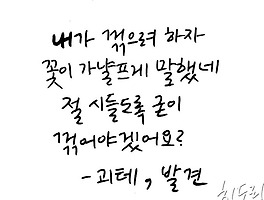 내가 꺾으려 하자
꽃이 가냘프게 말했네
절 시들도록 굳이
꺾어야겠어요?
- 괴테, 발견